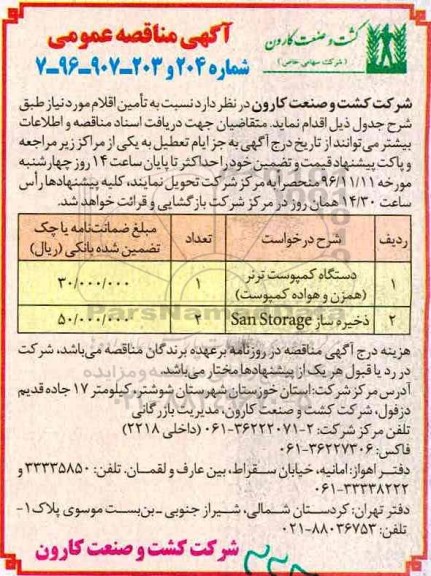 آگهی مناقصه عمومی
شماره ۲۰۴ و ۲۰۳-۹۰۷-۹۶-۷
کشت و صنعت کارون
(شرکت سهامی خاص)
شرکت کشت و صنعت کارون در نظر دارد نسبت به تأمین اقلام مورد نیاز طبق
شرح جدول ذیل اقدام نماید. متقاضیان جهت دریافت اسناد مناقصه و اطلاعات
بیشتر می‌توانند از تاریخ درج آگهی به جز ایام تعطیل به یکی از مراکز زیر مراجعه
و پاکت پیشنهاد قیمت و تضمین خود را حداکثر تا پایان ساعت ۱۴ روز چهارشنبه
مورخه ۹۶/۱۱/۱۱ منحصراً به مرکز شرکت تحویل نمایند، کلیه پیشنهادها رأس
ساعت ۱۴/۳۰ همان روز در مرکز شرکت بازگشایی و قرائت خواهد شد.
ردیف شرح درخواست تعداد مبلغ ضمانت‌نامه یا چک تضمین شده بانکی (ریال)
۱ دستگاه کمپوست ترنر (همزن و هواده کمپوست) ۱ ۳۰/۰۰۰/۰۰۰
۲ ذخیره ساز San Storage ۲ ۵۰/۰۰۰/۰۰۰
هزینه درج آگهی مناقصه در روزنامه بر عهده برندگان مناقصه می‌باشد، شرکت
در رد یا قبول هر یک از پیشنهادها مختار می‌باشد.
آدرس مرکز شرکت: استان خوزستان شهرستان شوشتر، کیلومتر ۱۷ جاده قدیم
دزفول، شرکت کشت و صنعت کارون، مدیریت بازرگانی
تلفن مرکز شرکت: ۲-۳۶۲۲۲۰۷۱-۰۶۱ (داخلی ۲۲۱۸)
فاکس: ۳۶۲۲۷۳۰۶-۰۶۱
دفتر اهواز: امانیه، خیابان سقراط، بین عارف و لقمان. تلفن: ۳۳۳۳۵۸۵۰ و
۳۳۳۳۸۲۲۲-۰۶۱
دفتر تهران: کردستان شمالی، شیراز جنوبی - بن‌بست موسوی پلاک ۱-
تلفن: ۸۸۰۳۶۷۵۳-۰۲۱
شرکت کشت و صنعت کارون